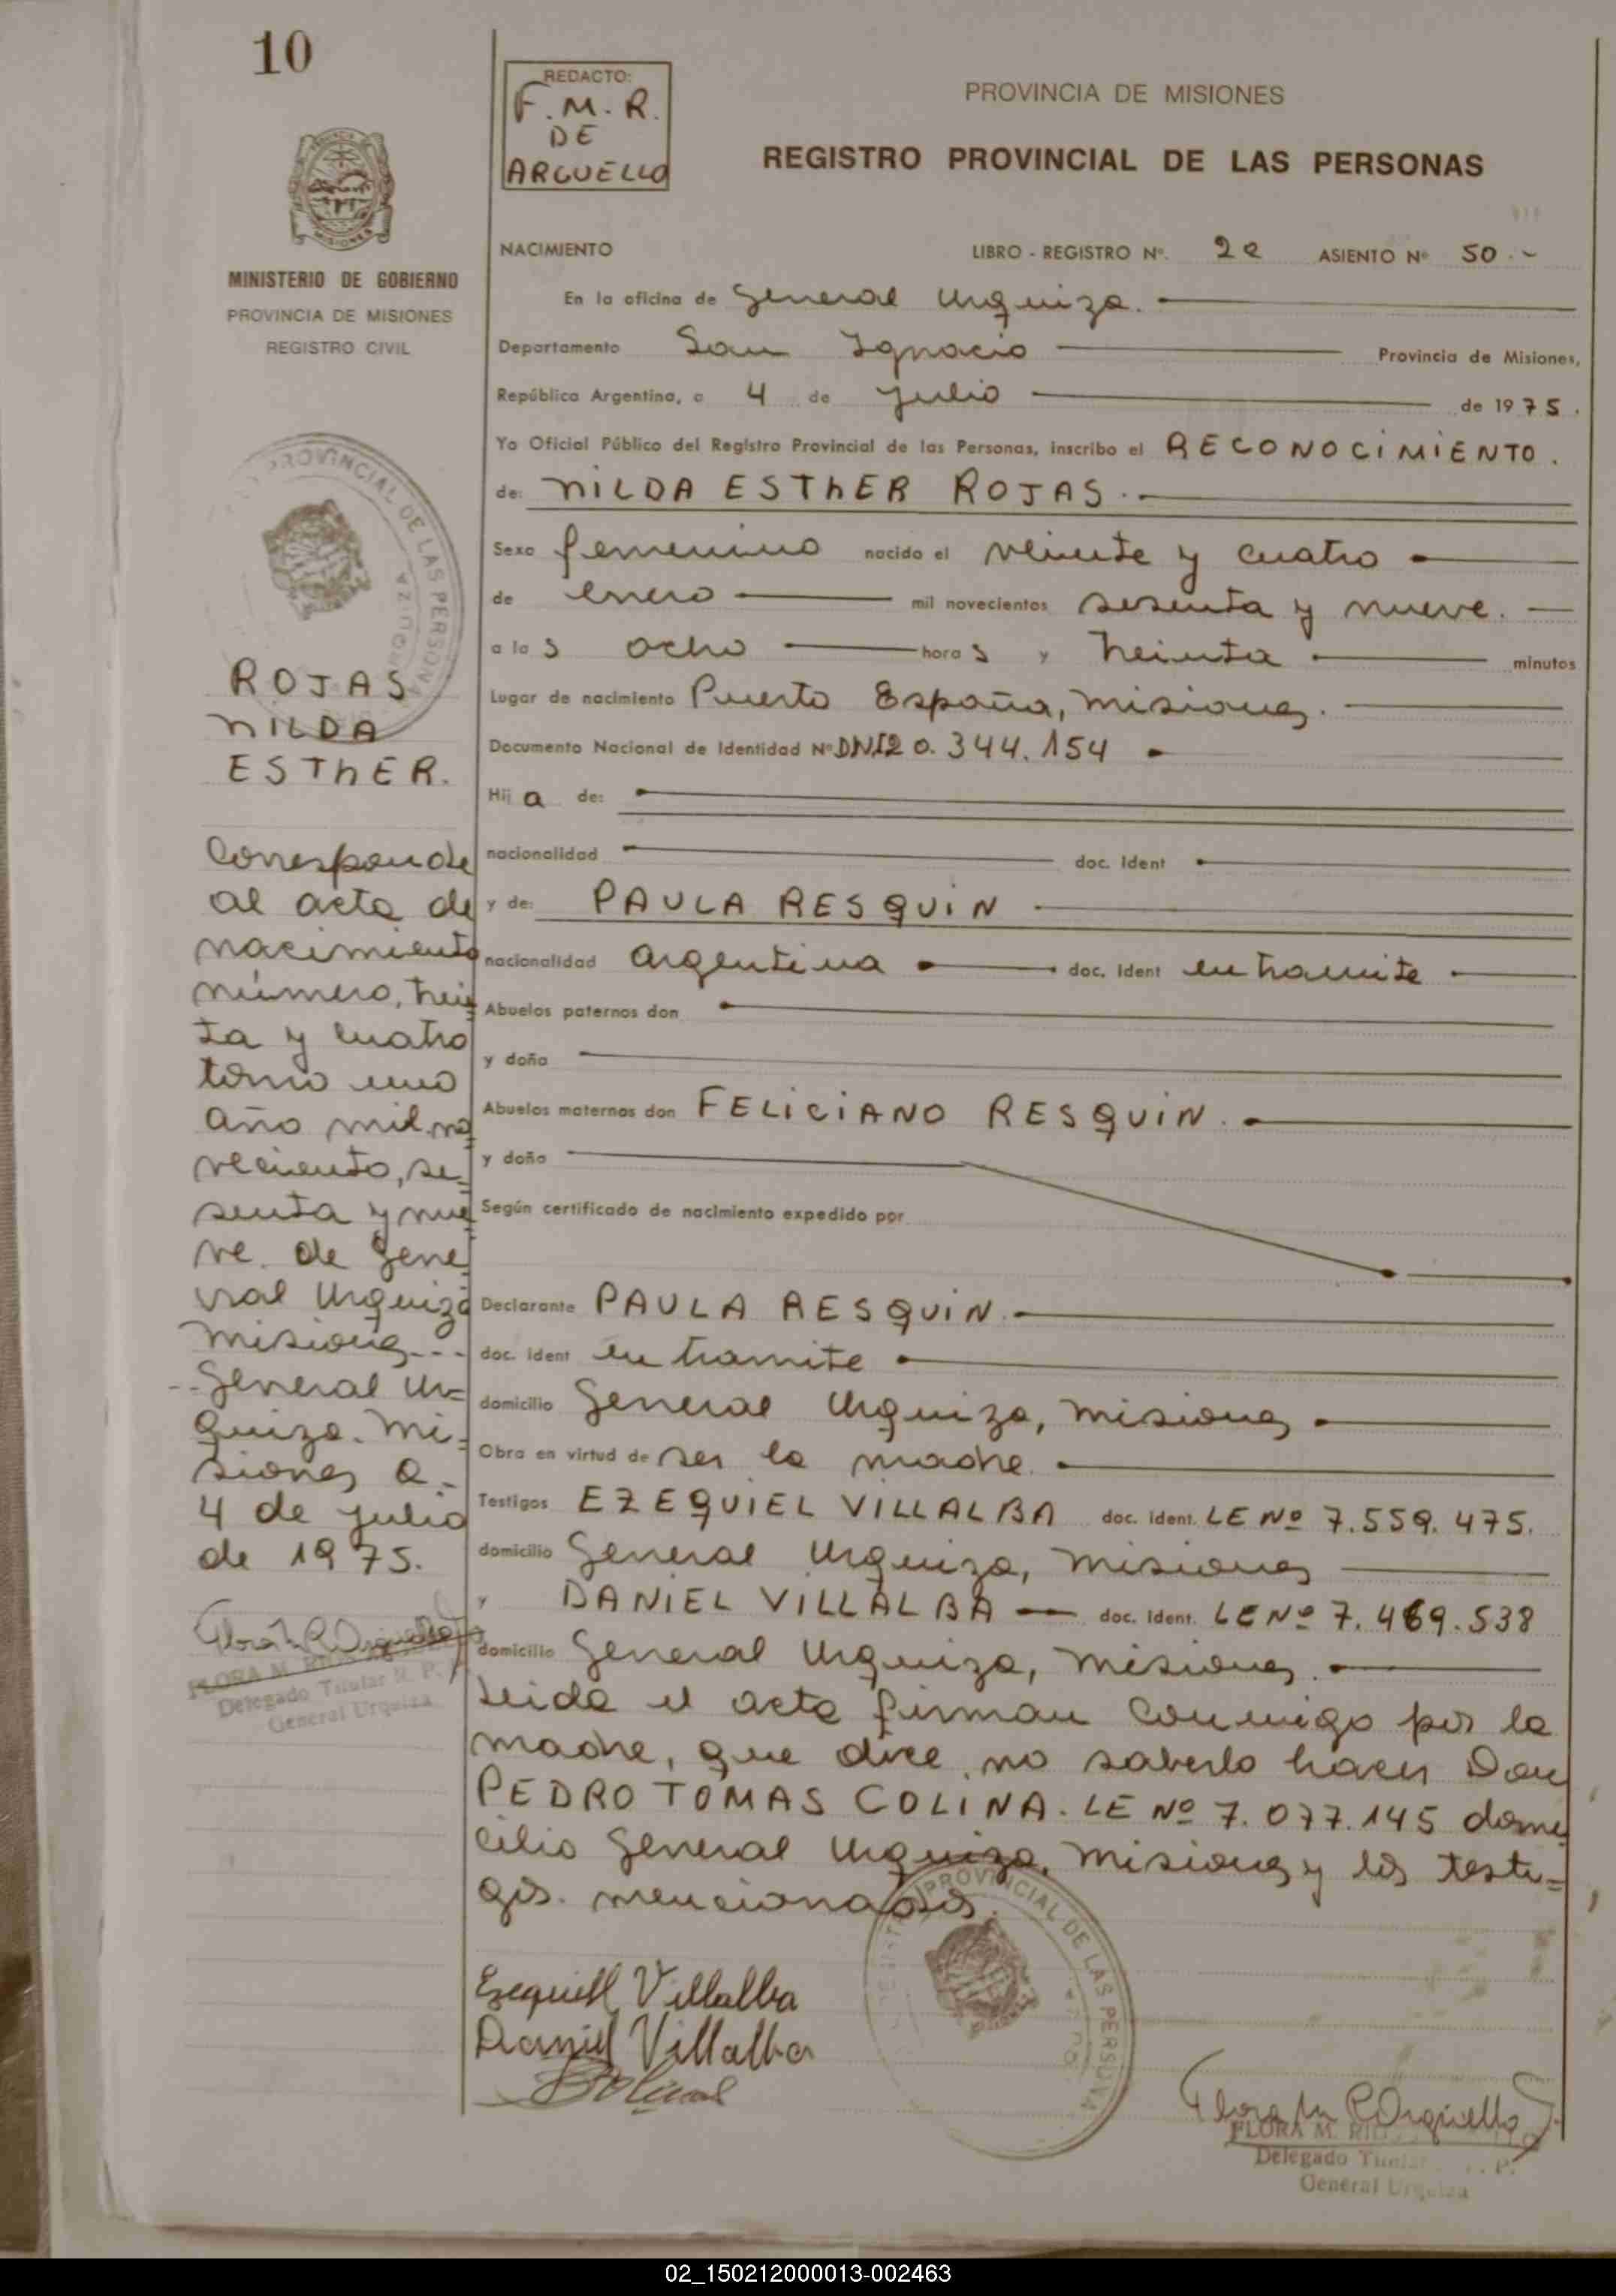 10
REDACTO:
F. M. R.
DE
ARGUELLO
PROVINCIA DE MISIONES
REGISTRO PROVINCIAL DE LAS PERSONAS
MISIONES
MINISTERIO DE GOBIERNO
PROVINCIA DE MISIONES
REGISTRO CIVIL
NACIMIENTO LIBRO - REGISTRO Nº. 2º ASIENTO Nº 50.-
En la oficina de General Urquiza.
Departamento San Ignacio Provincia de Misiones,
República Argentina, a 4 de julio de 1975.
Yo Oficial Público del Registro Provincial de las Personas, inscribo el RECONOCIMIENTO.
de: NILDA ESTHER ROJAS.
Sexo femenino nacido el veinte y cuatro
de enero mil novecientos sesenta y nueve.
a las ocho horas y treinta minutos
Lugar de nacimiento Puerto España, Misiones.
Documento Nacional de Identidad Nº DNI 20.344.154
Hija de:
nacionalidad doc. Ident
y de: PAULA RESQUIN
nacionalidad argentina doc. Ident en tramite
Abuelos paternos don
y doña
Abuelos maternos don FELICIANO RESQUIN.
y doña
Según certificado de nacimiento expedido por
Declarante PAULA RESQUIN.
doc. Ident en tramite
domicilio General Urquiza, Misiones
Obra en virtud de ser la madre.
Testigos EZEQUIEL VILLALBA doc. Ident. LE Nº 7.559.475.
domicilio General Urquiza, Misiones
y DANIEL VILLALBA — doc. Ident. LE Nº 7.469.538
domicilio General Urquiza, Misiones.
Leida el acta firman conmigo por la
madre, que dice no saberlo hacer Don
PEDRO TOMAS COLINA. LE Nº 7.077.145 domi
cilio General Urquiza, Misiones y los testi=
gos mencionados.
PROVINCIAL DE LAS PERSONA
ROJAS
NILDA
ESTHER.
Corresponde
al acta de
nacimiento
número, trein
ta y cuatro
tomo uno
año mil no
veciento, se=
senta y nue
ve. de Gene
ral Urquiza
Misiones---
--General Ur=
quiza. Mi=
siones a.-
4 de julio
de 1975.
Flora M R Arguello
FLORA M. RIOS
Delegado Titular R. P.
General Urquiza
PROVINCIAL DE LAS PERSONA
Ezequiel Villalba
Daniel Villalba
Flora M R Arguello
FLORA M. RIOS
Delegado Titular P.
General Urquiza
02_150212000013-002463